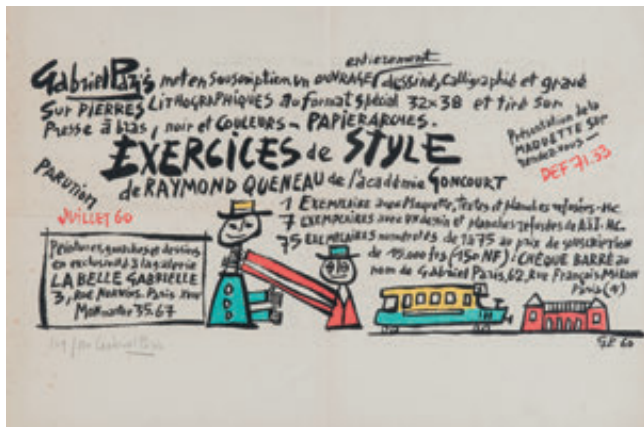 Gabriel Paris met en souscription un OUVRAGE entierement dessiné, Calligraphié et gravé
Sur PIERRES LITHOGRAPHIQUES au format spécial 32x38 et tiré sur
Presse à bras, noir et COULEURS - PAPIER ARCHES.
Présentation de la
MAQUETTE sur
rendez-vous -
DEF 71.33
EXERCICES de STYLE
de RAYMOND QUENEAU de l'académie GONCOURT
PARUTION
JUILLET 60
1 EXEMPLAIRE avec Maquette, textes et planches refusées-HC
7 EXEMPLAIRES avec un dessin et planches refusées de A à J-HC
75 EXEMPLAIRES numérotés de 1 à 75 au prix de souscription
de 15.000 frs (150 NF): CHÈQUE BARRÉ au
nom de Gabriel Paris, 62, Rue François MIRON
Paris (4)
Peintures, gouaches et dessins
en exclusivité à la galerie
LA BELLE GABRIELLE
3, Rue NORVINS. Paris XVIII
MONmartre 35.67
G.P. 60